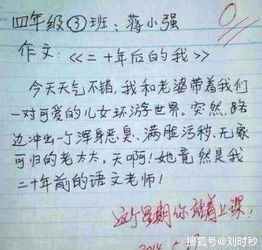 四年级③班：蒋小强
0
作文：《二十年后的我》
今天天气不错，我和老婆带着我们
一对可爱的儿女环游世界。突然，路
边冲出一个浑身恶臭、满脸污秽、无家
可归的老太太。天啊！她竟然是我
二十年前的语文老师！
这个星期你站着上课！
搜狐号@刘时秒